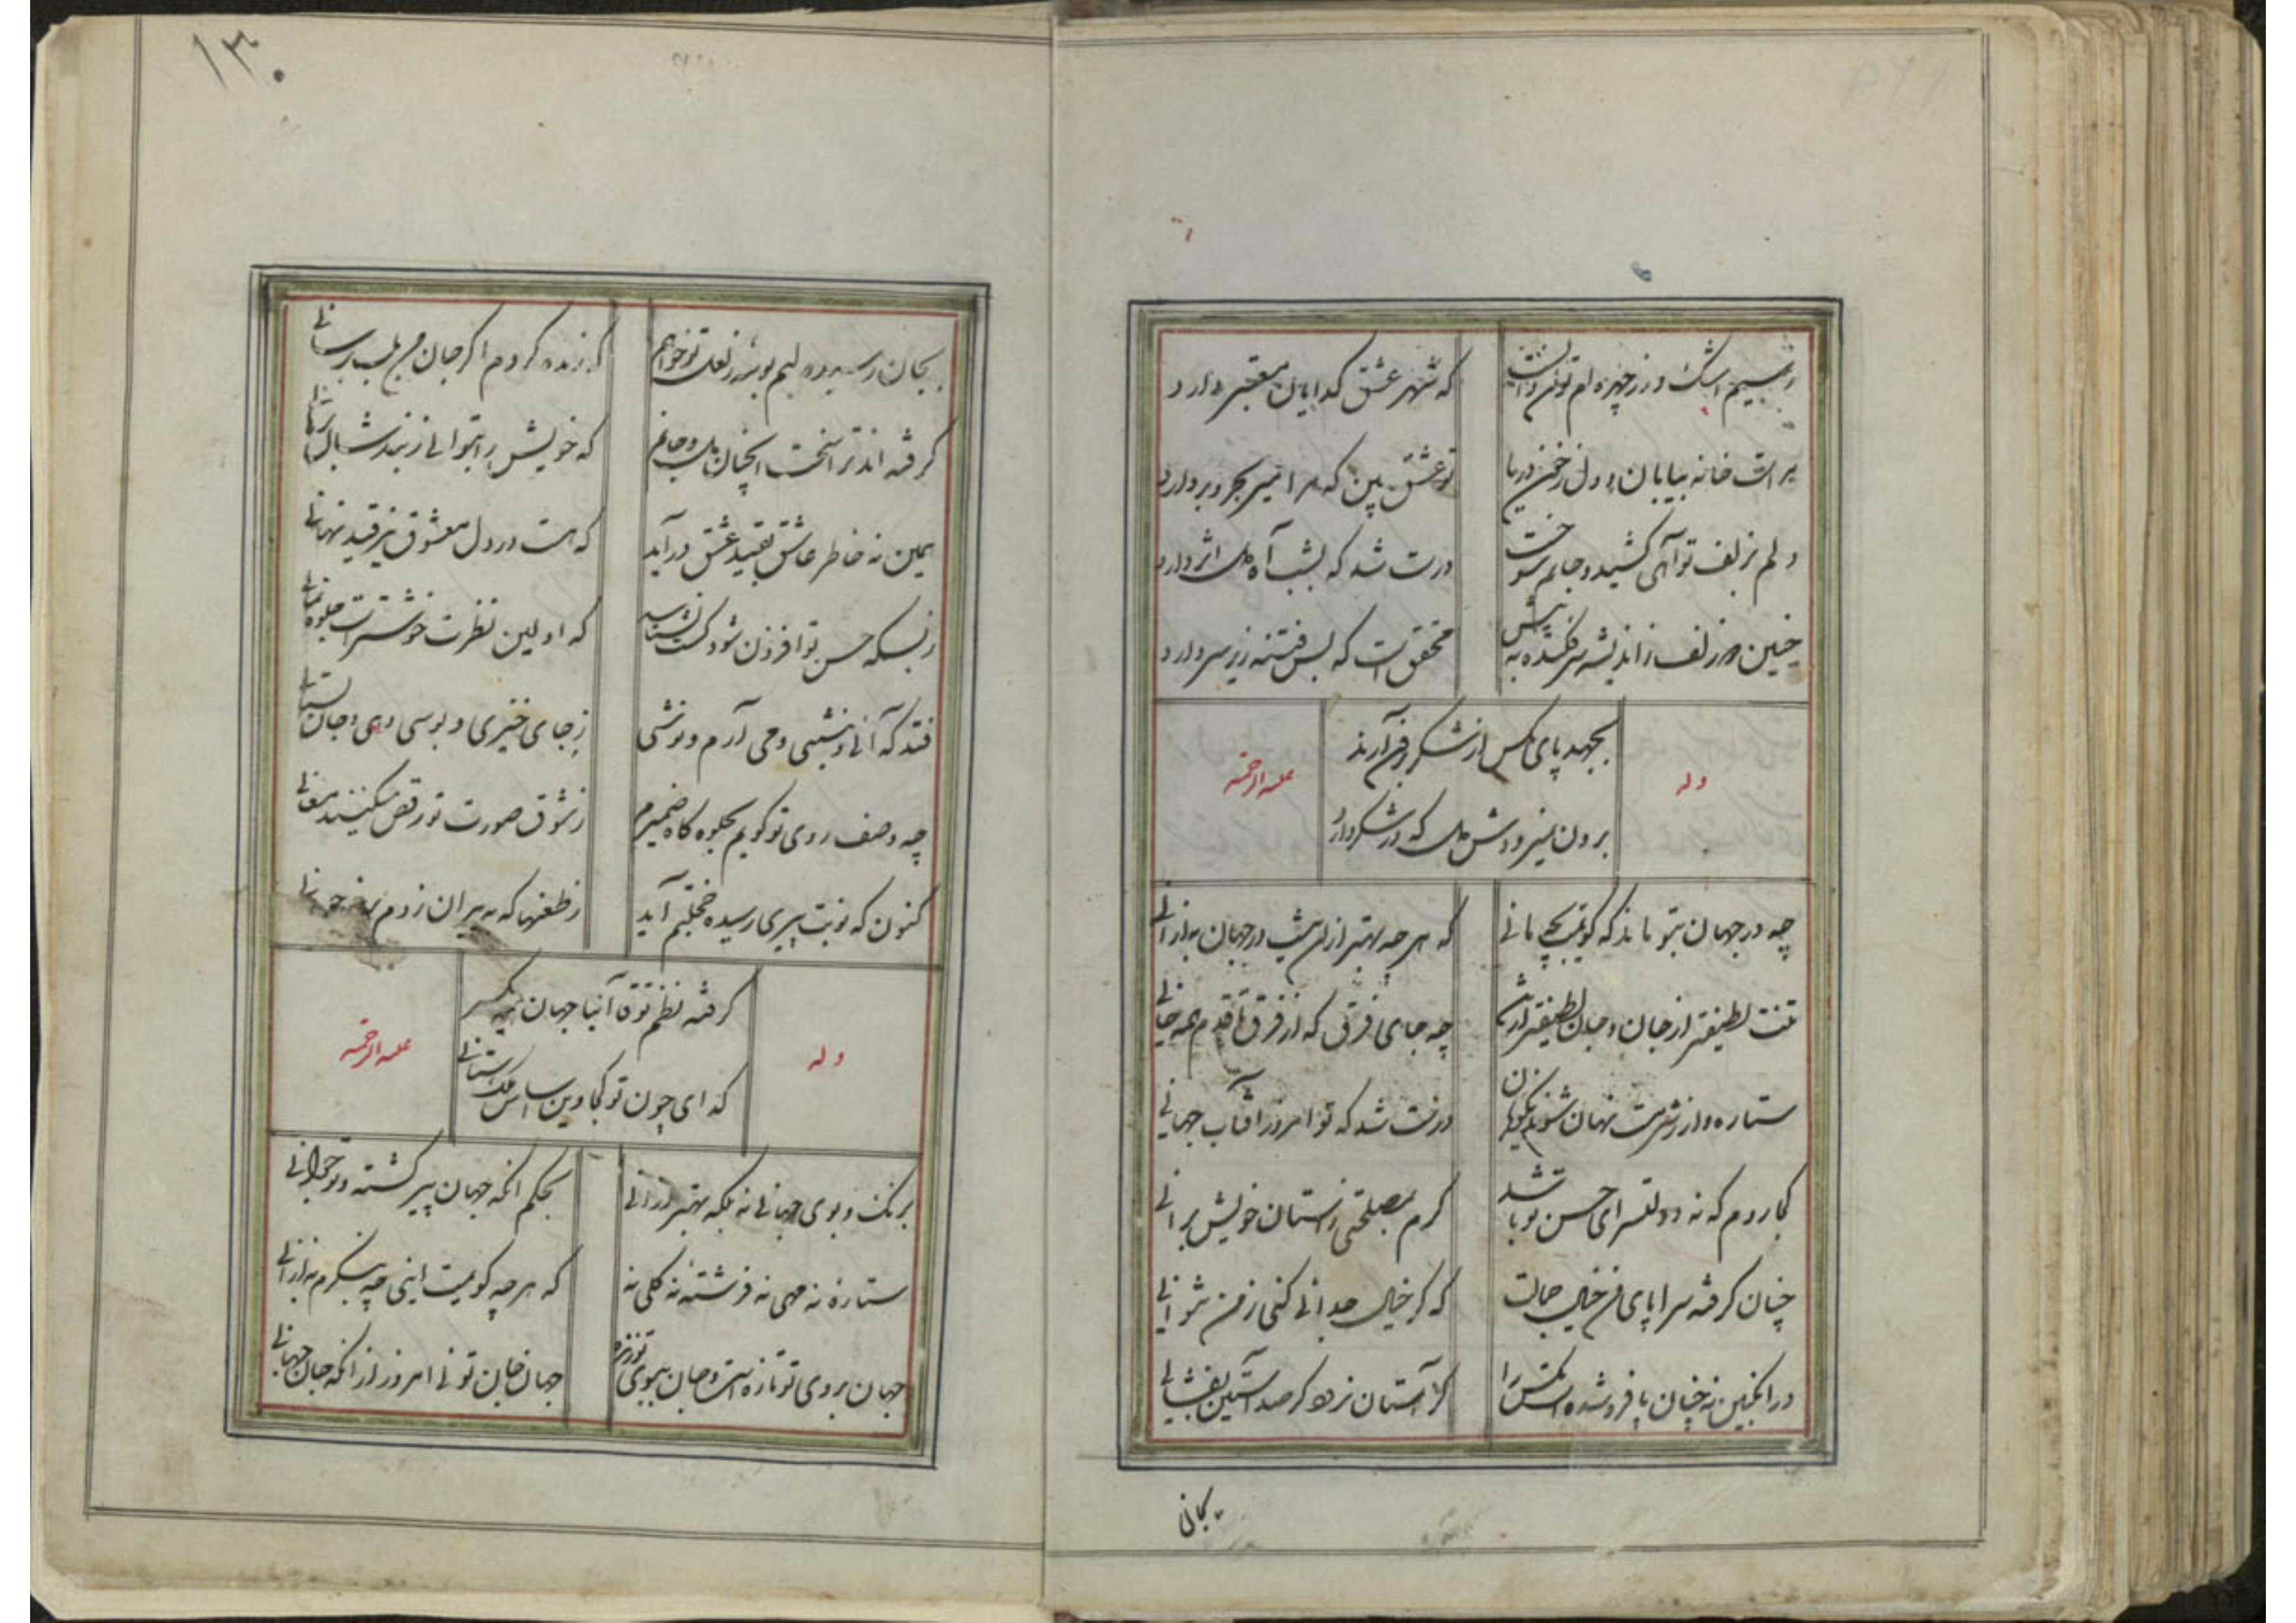 ز سیم اشک و زر چهره ام توان دانست
که شهر عشق گدایان معتبر دارد
براست خانه بیابان و دل ز خون دریا
تو عشق بین که مرا میر بحر و بر دارد
دلم ز زلف تو آهی کشید و جانم سوخت
درست شد که بشب آه دل اثر دارد
چنین که زلف ز اندیشه سر فکنده به پیش
محقق است که بس فتنه زیر سر دارد
وله
بجهد پای مگس از شکر برون آرند
برون نمیرودش دل که در شکر دارد
علیه الرحمه
چه در جهان بتو ماند که گویمت بچه مانی
که هر چه بهتر ازان نیست در جهان به ازانی
تنت لطیفتر از جان و جان لطیفتر از تن
چه جای فرق که از فرق تا قدم همه جانی
ستاره وار ز شرمت نهان شوند نکویان
درست شد که تو امروز آفتاب جهانی
کجا روم که نه دولتسرای حسن تو باشد
گرم بمصلحتی ز استان خویش برانی
چنان گرفته سراپای من خیال جمالت
که گر خیال جدائی کنی ز من نتوانی
در انگبین نه چنان پا فرو شده است مگس را
کز آستان نرود گر صد آستین بفشانی
بجانی
۱۳۰
بجان رسیده لبم بوسه ز لعل تو خواهم
که زنده گردم اگر جان من بلب برسانی
گرفته اند ترا سخت آنچنان بدل و جانم
که خویش را بتوانی ز بند شان برهانی
همین نه خاطر عاشق بقید عشق درآید
که هست در دل معشوق نیز قید نهانی
ز بسکه حسن تو افزون شود کست نشناسد
که اولین نظرت خوشتر است جلوه ثانی
فتد که آئی و بنشینی و می آرم و نوشی
ز جای خیزی و بوسی دهی و جان بستانی
چه وصف روی تو گویم بجلوه گاه ضمیرم
ز شوق صورت تو رقص میکنند معانی
کنون که نوبت پیری رسیده خجلتم آید
ز طعنها که به پیران زدم بروز جوانی
وله
گرفته نظم تو قاآنیا جهان همه یکسر
که ای چون تو کجا و این سپاس ملک ستانی
علیه الرحمه
برنگ و بوی جهانی نه بلکه بهتر ازانی
بحکم آنکه جهان پیر گشته و تو جوانی
ستارهٔ نه مهی نه فرشتهٔ نه گلی نه
که هر چه گویمت اینی چه بنگرم به ازانی
جهان بروی تو تازه است و جان ببوی تو زنده
جهان جان توئی امروز از آنکه جان جهانی